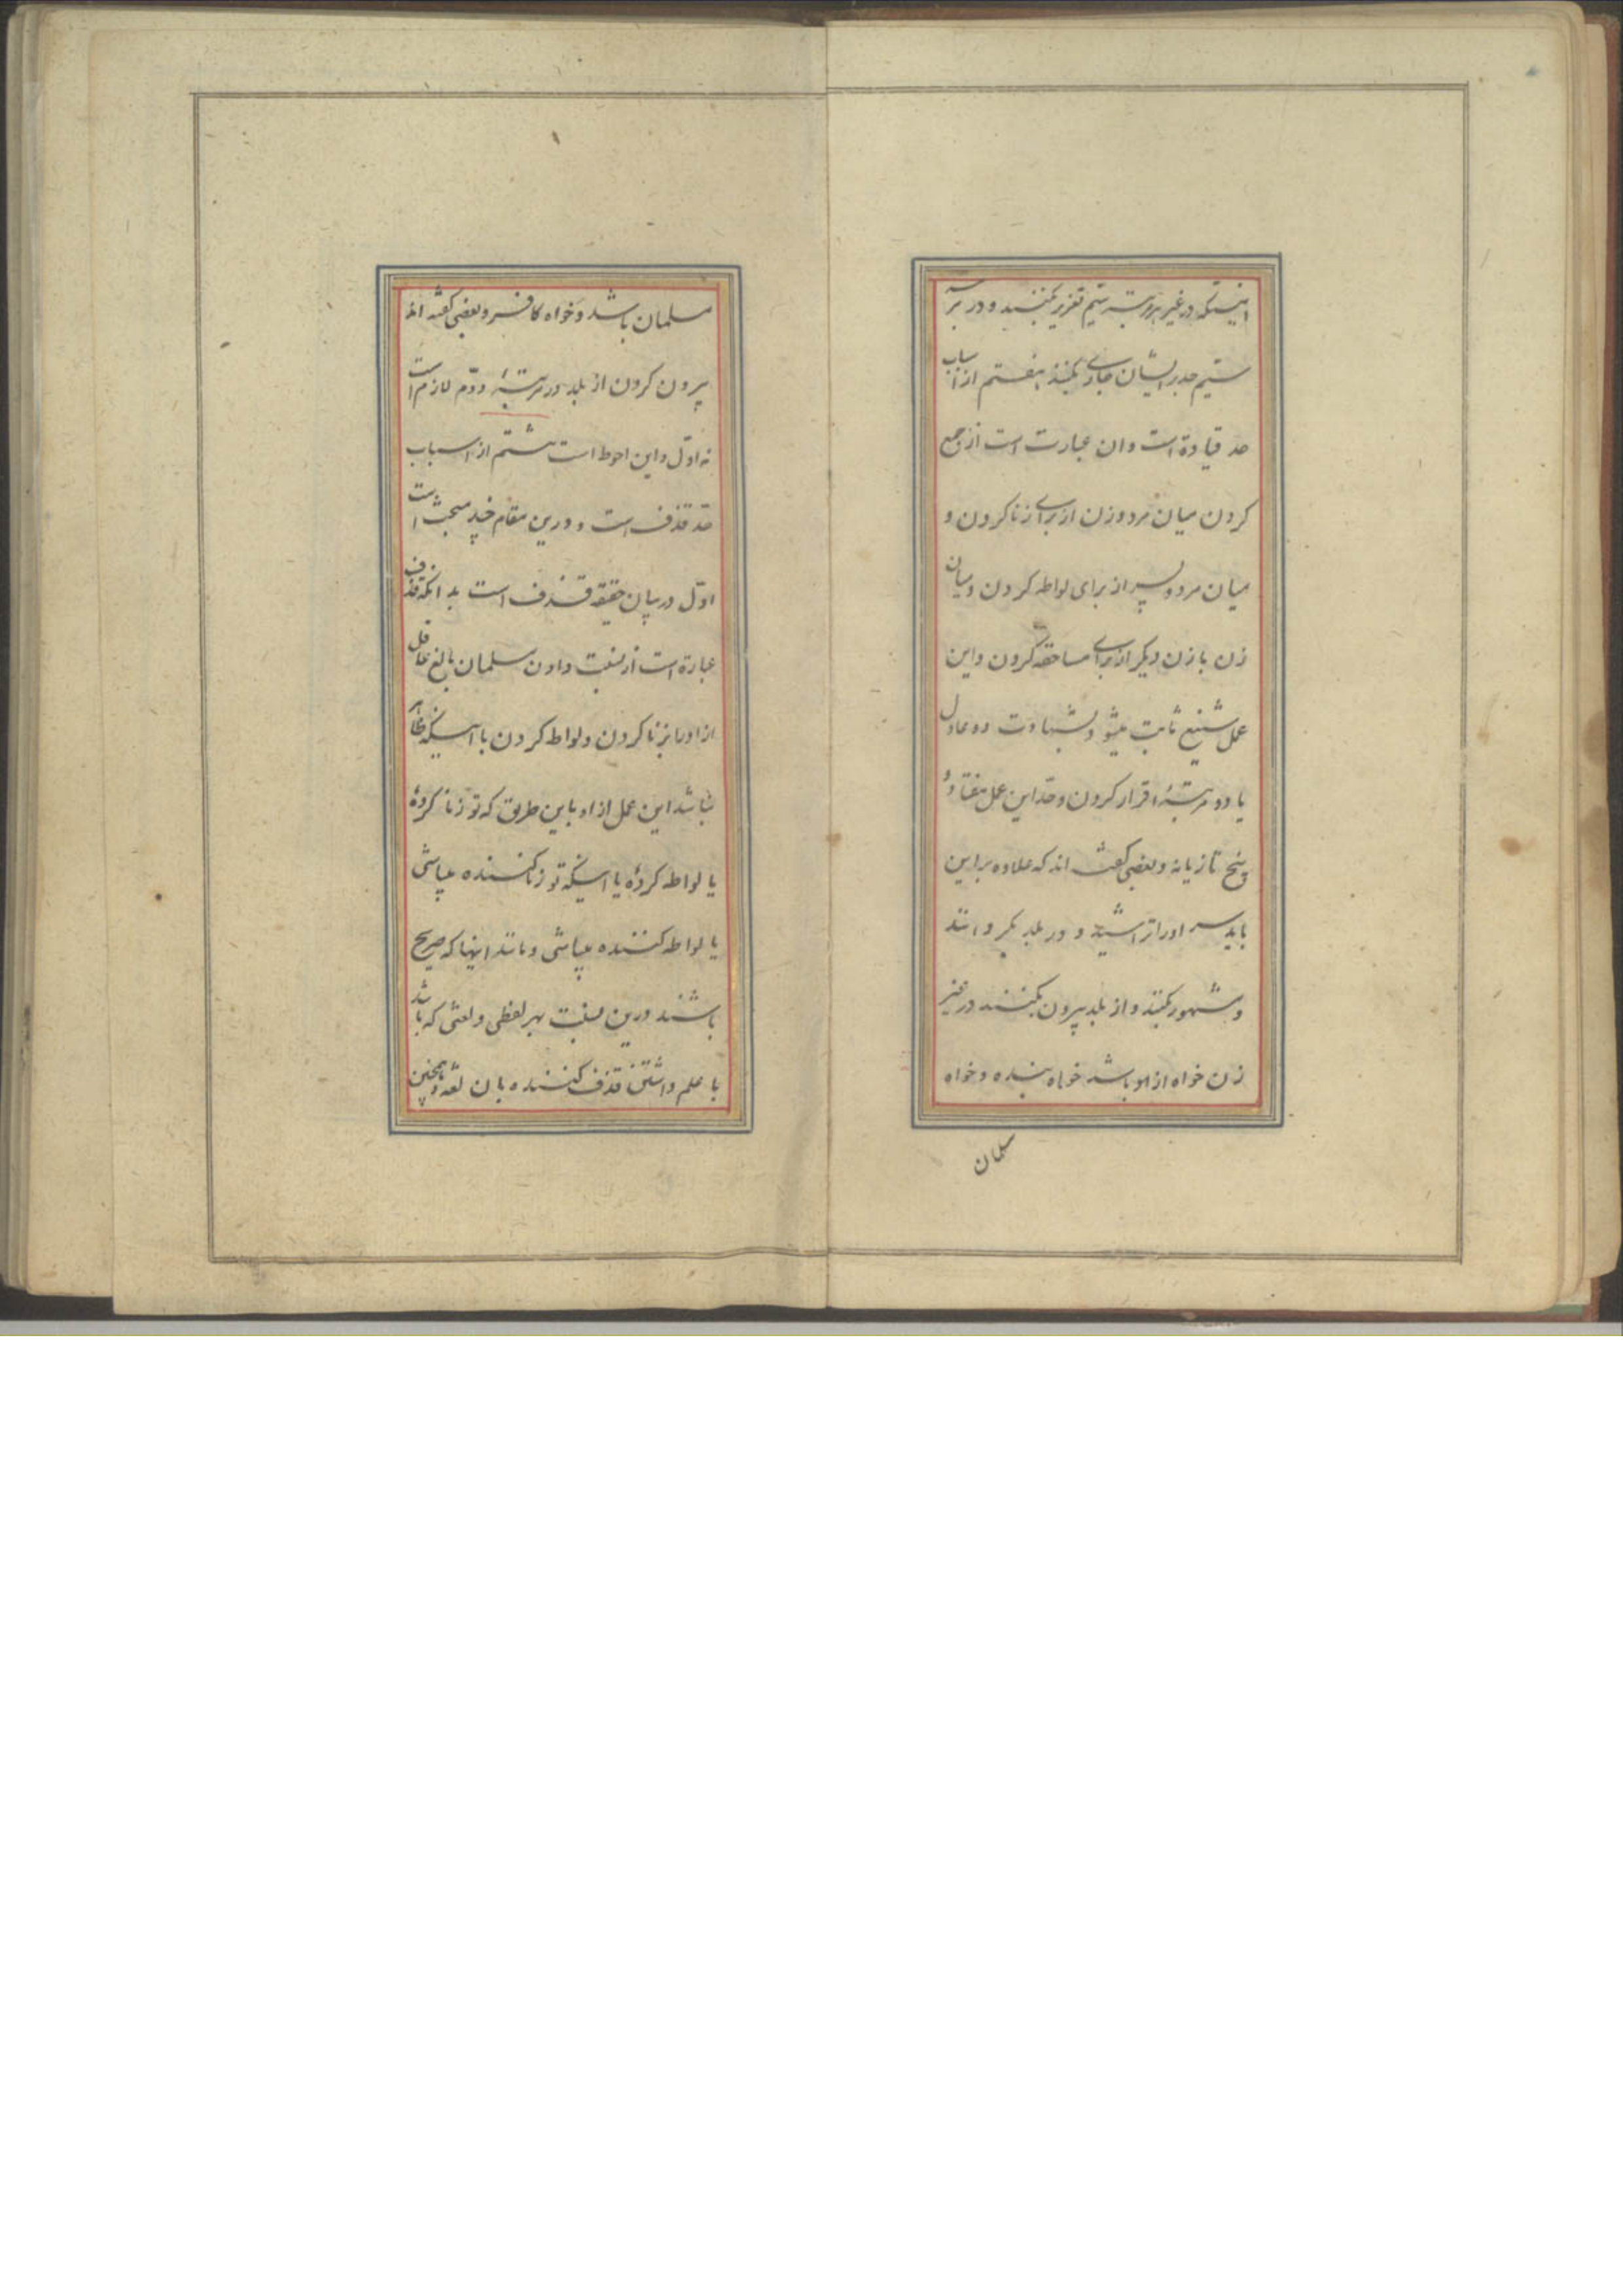 اینستکه در غیر مرتبه سیم تعزیر بکنند و در مرتبه
سیم حد بر ایشان جاری بکنند هفتم از اسباب
حد قیادة است و ان عبارت است از جمع
کردن میان مرد و زن از برای زنا کردن و
میان مرد و پسر از برای لواطه کردن و میان
زن با زن دیکر از برای مساحقه کردن و این
عمل شنیع ثابت میشود بشهادت دو عادل
یا دو مرتبهٔ اقرار کردن و حد این عمل هفتاد و
پنج تازیانه و بعضی کفته اند که علاوه بر این
باید سر او را تراشیده و در بلد بکردانند
و مشهور بکنند و از بلد بیرون بکنند در غیر
زن خواه ازاد باشد خواه بنده و خواه
مسلمان
مسلمان باشد و خواه کافر و بعضی کفته اند
بیرون کردن از بلد در مرتبهٔ دوّم لازم است
نه اوّل و این احوط است هشتم از اسباب
حدّ قذف است و درین مقام چند مبحث است
اوّل در بیان حقیقة قذف است بدانکه قذف
عبارة است از نسبت دادن مسلمان بالغ عاقل
ازاد را بزنا کردن و لواط کردن با اینکه ظاهر
نباشد این عمل از او باین طریق که تو زنا کردهٔ
یا لواطه کردهٔ یا اینکه تو زنا کننده میباشی
یا لواطه کننده میباشی و مانند اینها که صریح
باشند درین نسبت بهر لفظی و لغتی که باشد
با علم داشتن قذف کننده بان لغة و همچنین